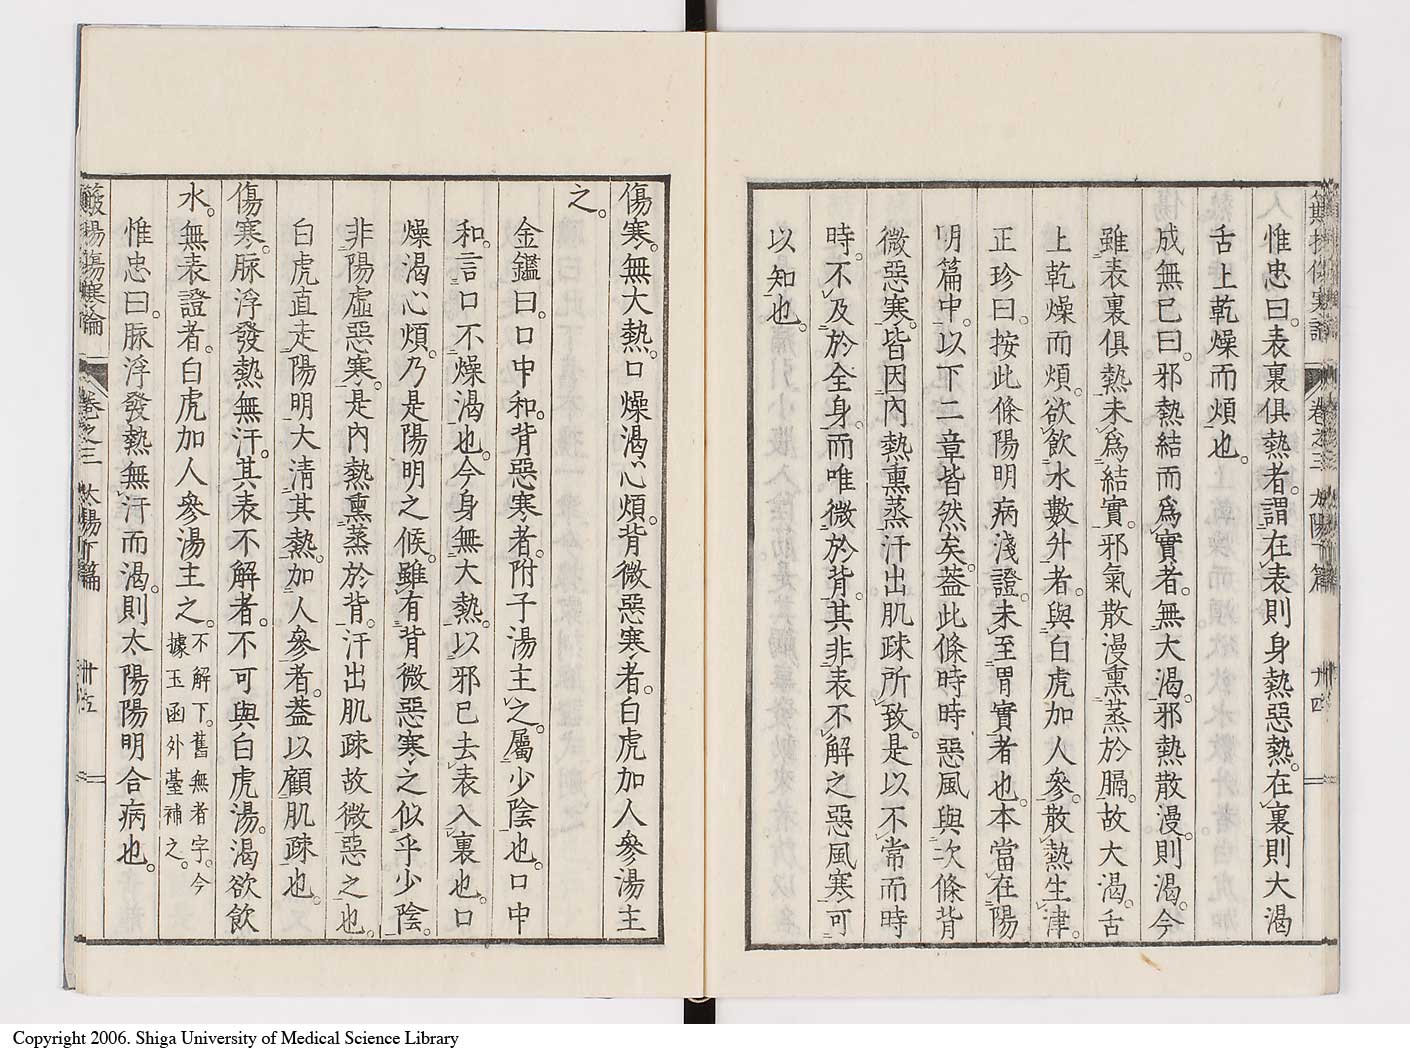 惟忠曰。表裏俱熱者。謂在表則身熱惡熱。在裏則大渴
舌上乾燥而煩也。
成無已曰。邪熱結而爲實者。無大渴。邪熱散漫。則渴。今
雖表裏俱熱。未爲結實。邪氣散漫熏蒸於膈。故大渴。舌
上乾燥而煩。欲飲水數升者。與白虎加人參。散熱生津。
正珍曰。按此條陽明病淺證。未至胃實者也。本當在陽
明篇中。以下二章皆然矣。蓋此條時時惡風與次條背
微惡寒。皆因內熱熏蒸汗出肌疎所致。是以不常而時
時。不及於全身。而唯微於背。其非表不解之惡風寒。可
以知也。
卷之三 太陽下篇 卅四
傷寒。無大熱。口燥渴。心煩。背微惡寒者。白虎加人參湯主
之。
金鑑曰。口中和。背惡寒者。附子湯主之。屬少陰也。口中
和。言口不燥渴也。今身無大熱。以邪已去表入裏也。口
燥渴心煩。乃是陽明之候。雖有背微惡寒之似乎少陰。
非陽虛惡寒。是內熱熏蒸於背。汗出肌疎。故微惡之也。
白虎直走陽明。大淸其熱。加人參者。蓋以顧肌疎也。
傷寒。脈浮發熱無汗。其表不解者。不可與白虎湯。渴欲飮
水。無表證者。白虎加人參湯主之。不解下。舊無者字。今
據玉函外臺補之。
惟忠曰。脈浮發熱無汗而渴。則太陽陽明合病也。
傷寒論 卷之三 太陽下篇